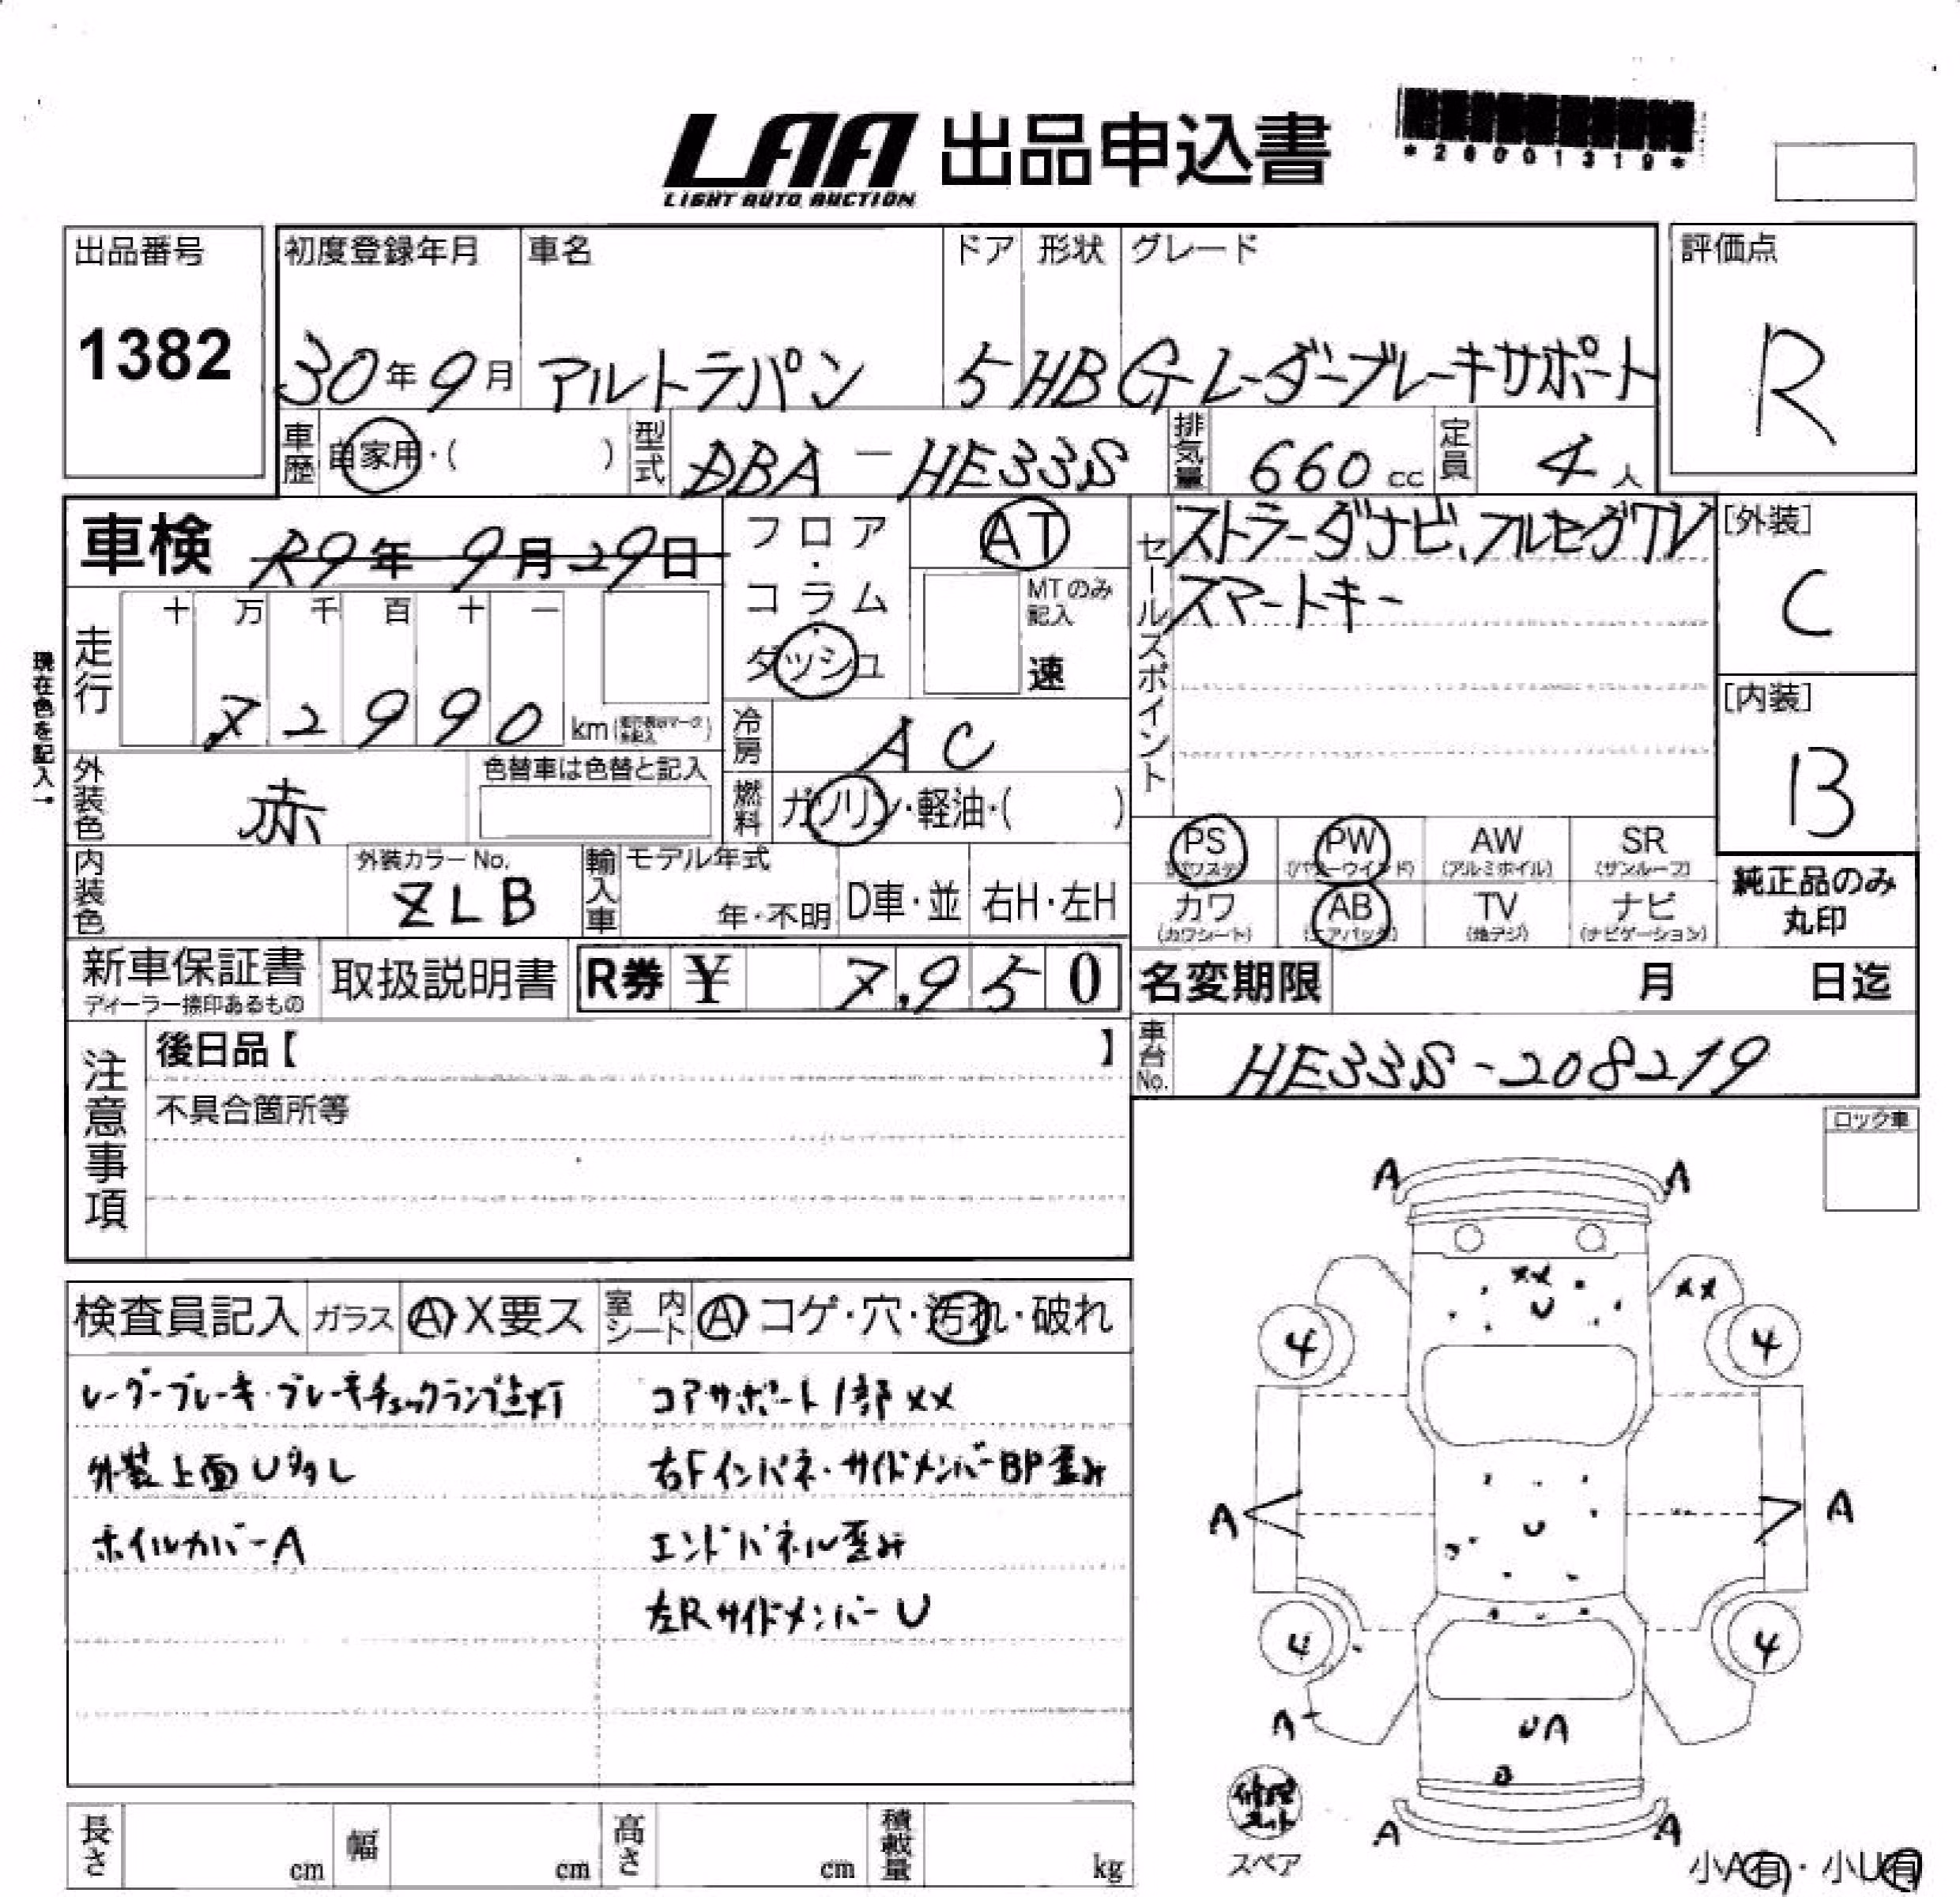 LAA 出品申込書
LIGHT AUTO AUCTION
*26001319*
出品番号 初度登録年月 車名 ドア 形状 グレード 評価点
1382 30年9月 アルトラパン 5 HB G レーダーブレーキサポート R
車歴 自家用・( ) 型式 DBA-HE33S 排気量 660cc 定員 4人
車検 R9年9月29日 フロア・コラム・ダッシュ AT MTのみ記入 速
セールスポイント ストラーダナビ、フルセグTV
スマートキー
[外装] C
[内装] B
現在色を記入→
走行 十万千百十一 72990 km
冷房 AC
外装色 赤 色替車は色替と記入
燃料 ガソリン・軽油・( )
内装色 外装カラーNo. ZLB 輸入車 モデル年式 年・不明 D車・並 右H・左H
PS (パワステ) PW (パワーウインド) AW (アルミホイル) SR (サンルーフ)
カワ (カワシート) AB (エアバック) TV (地デジ) ナビ (ナビゲーション)
純正品のみ
丸印
新車保証書 ディーラー捺印あるもの 取扱説明書 R券 ¥ 7,950
名変期限 月 日迄
車台No. HE33S-208219
注意事項 後日品【 】
不具合箇所等
ロック車
検査員記入 ガラス A X要ス 室内シート A コゲ・穴・汚れ・破れ
レーダーブレーキ・ブレーキチェックランプ点灯 コアサポート1部XX
外装上面U多し 右Fインパネ・サイドメンバーBP歪み
ホイルカバーA エンドパネル歪み
左RサイドメンバーU
A A
XX XX
U
4 4
A U A
4 4
A UA
A A
修理キット
スペア
小A有・小U有
長さ cm 幅 cm 高さ cm 積載量 kg